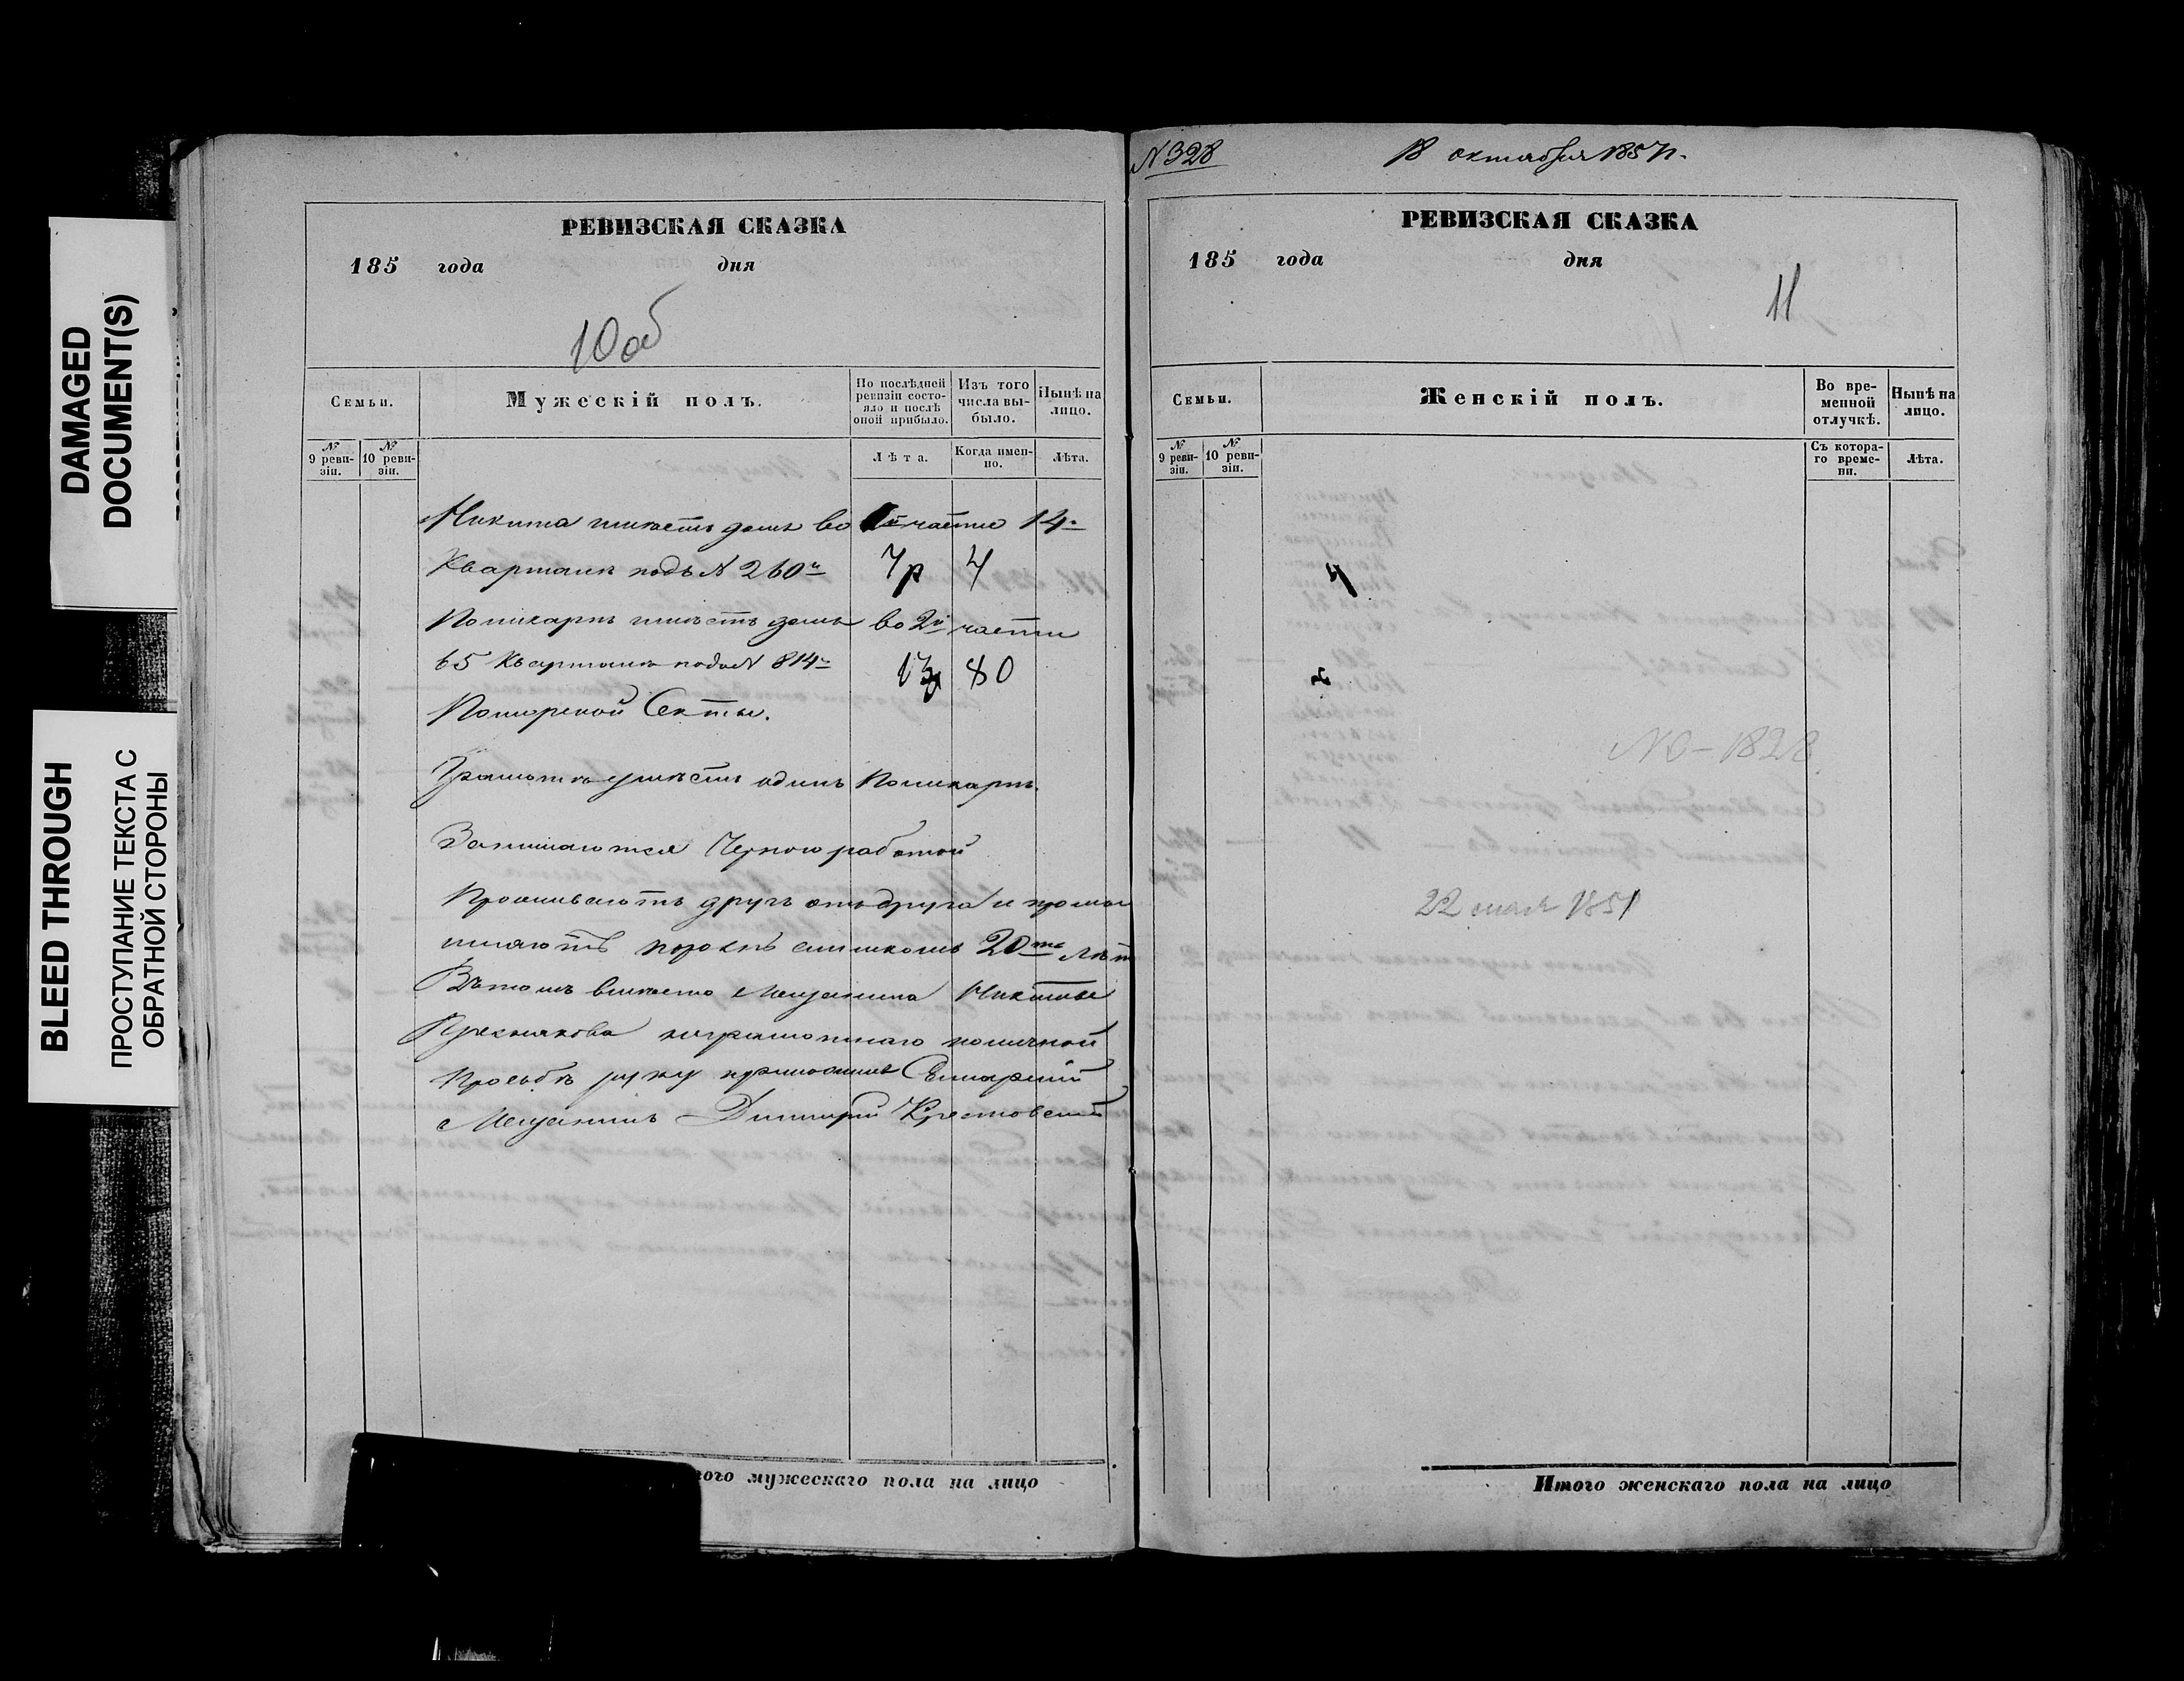 DAMAGED
DOCUMENT(S)
BLEED THROUGH
ПРОСТУПАНИЕ ТЕКСТА С
ОБРАТНОЙ СТОРОНЫ
РЕВИЗСКАЯ СКАЗКА
185 года дня
10 об
Семьи.
Мужескій полъ.
По послѣдней ревизіи состояло и послѣ оной прибыло.
Изъ того числа выбыло.
Нынѣ на лицо.
№ 9 ревизіи.
№ 10 ревизіи.
Лѣта.
Когда именно.
Лѣта.
Никита имѣетъ домъ во части 14
Квартала подъ N 260 7р 4
Поликарпъ имѣетъ домъ во 2й части
65 Квартала подъ N 814 13 80
Поморской Секты.
Грамотѣ умѣетъ одинъ Поликарпъ.
Занимаются Черною работой
Проживаютъ другъ отъ друга и
порознь слишкомъ 20ть лѣт
Въ томъ вмѣсто Мещанина Никиты
неграмотнаго по личной
прозьбѣ руку приложилъ Самарскій
Мещанинъ Дмитрій Крестовскій
ого мужескаго пола на лицо
N 328
18 октября 1857 г.
РЕВИЗСКАЯ СКАЗКА
185 года дня
11
Семьи.
Женскій полъ.
Во временной отлучкѣ.
Нынѣ на лицо.
№ 9 ревизіи.
№ 10 ревизіи.
Съ котораго времени.
Лѣта.
NO-1828
22 мая 1851
Итого женскаго пола на лицо